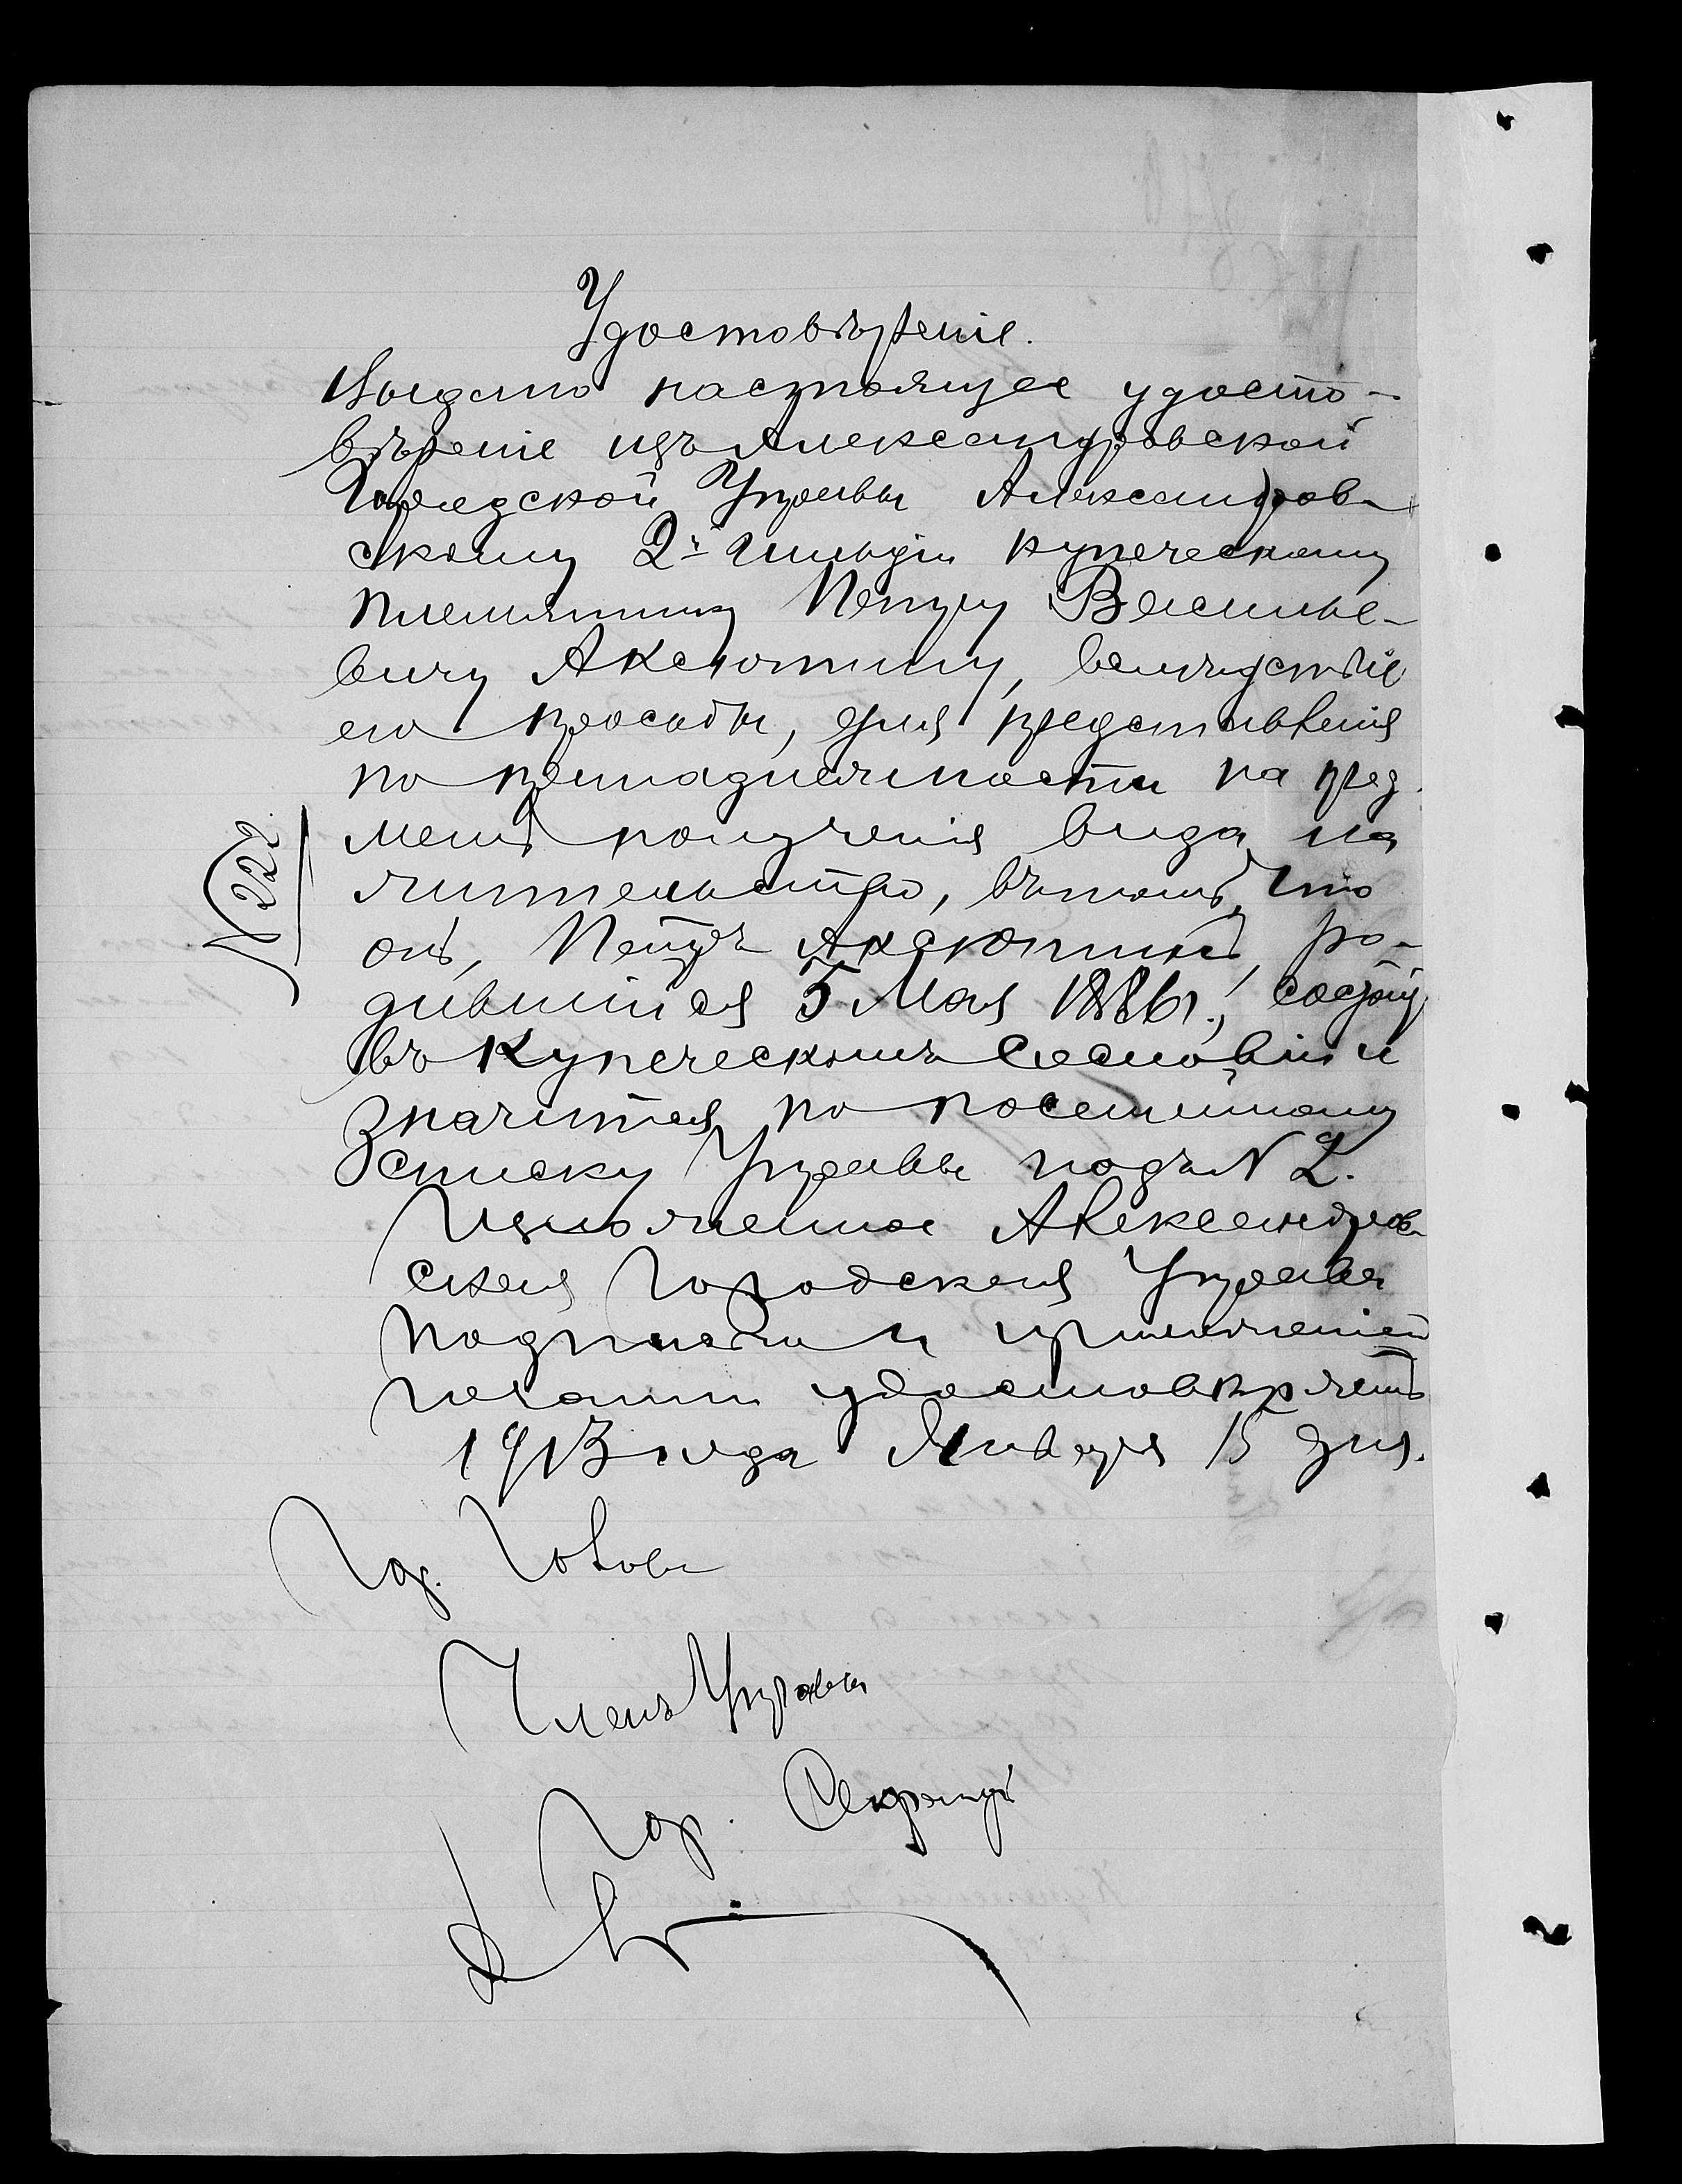 Удостовѣреніе.
Выдано настоящее удосто-
вѣреніе изъ Александровской
Городской Управы Александров-
скому 2й Гильдіи купеческому
племяннику Петру Василье-
вичу Аксютину, вслѣдствіе
его просьбы, для представленія
по принадлежности на пред-
метъ полученія вида на
жительство, въ томъ, что
онъ, Петръ Аксютинъ, ро-
дившійся 5 Мая 1886 г.,
въ Купеческомъ Сословіи и
значится по посемейному
списку Управы подъ № 2.
Изложенное Александров-
ская Городская Управа
подписью и приложеніемъ
печати удостовѣряетъ
1913 года Января 15 дня.
№ 222.
Гор. Голова
Членъ Управы
Гор. Секретарь